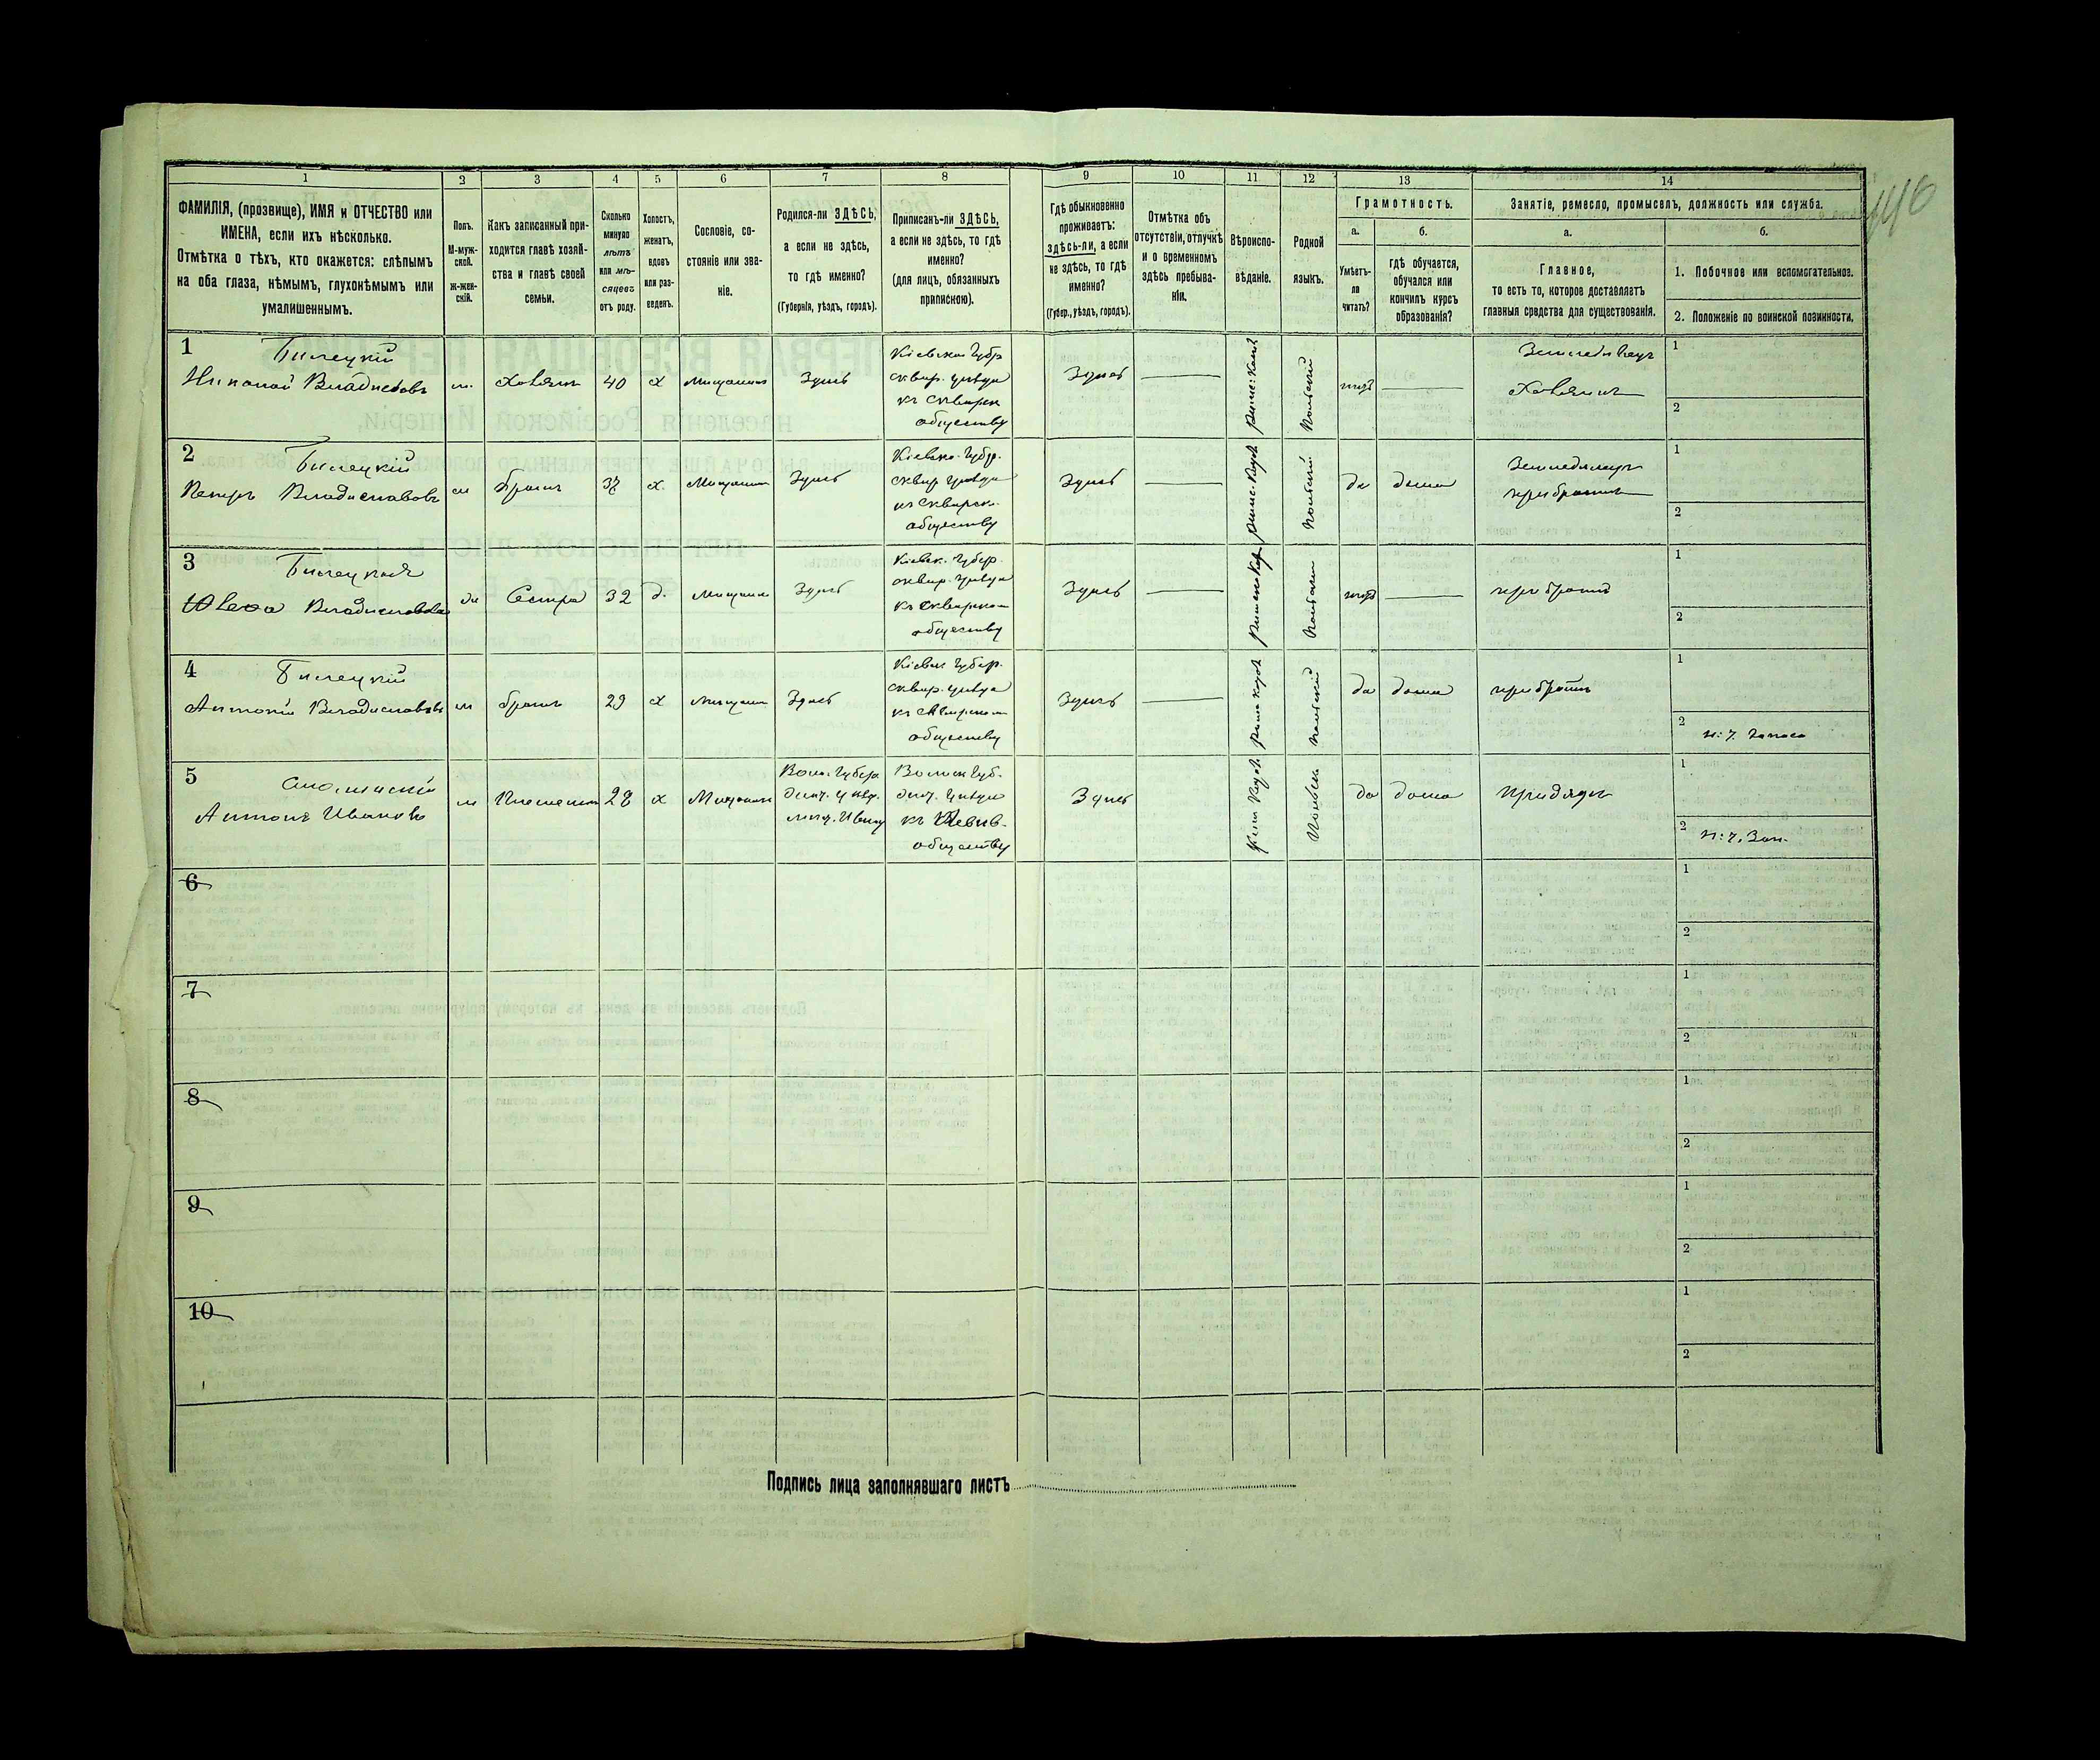 1
2
3
4
5
6
7
8
9
10
11
12
13
14
140
ФАМИЛІЯ, (прозвище), ИМЯ и ОТЧЕСТВО или
ИМЕНА, если ихъ нѣсколько.
Отмѣтка о тѣхъ, кто окажется: слѣпымъ
на оба глаза, нѣмымъ, глухонѣмымъ или
умалишеннымъ.
Полъ.
М-муж-
ской.
ж-жен-
скій.
Какъ записанный при-
ходится главѣ хозяй-
ства и главѣ своей
семьи.
Сколько
минуло
лѣтъ
или мѣ-
сяцевъ
отъ роду.
Холостъ,
женатъ,
вдовъ
или раз-
веденъ.
Сословіе, со-
стояніе или зва-
ніе.
Родился-ли ЗДѢСЬ,
а если не здѣсь,
то гдѣ именно?
(Губернія, уѣздъ, городъ).
Приписанъ-ли ЗДѢСЬ,
а если не здѣсь, то гдѣ
именно?
(для лицъ, обязанныхъ
припискою).
Гдѣ обыкновенно
проживаетъ:
здѣсь-ли, а если
не здѣсь, то гдѣ
именно?
(Губер., уѣздъ, городъ).
Отмѣтка объ
отсутствіи, отлучкѣ
и о временномъ
здѣсь пребыва-
ніи.
Вѣроиспо-
вѣданіе.
Родной
языкъ.
Грамотность.
а.
Умѣетъ-
ли
читать?
б.
гдѣ обучается,
обучался или
кончилъ курсъ
образованія?
Занятіе, ремесло, промыселъ, должность или служба.
а.
Главное,
то есть то, которое доставляетъ
главныя средства для существованія.
б.
1. Побочное или вспомогательное.
2. Положеніе по воинской повинности.
1
Билецкій
Николай Владиславовъ
м.
Хозяинъ
40
х
мищанинъ
Здѣсь
Кіевской Губр
сквир. уѣзда
къ сквирск
обществу
Здѣсь
Римс: Катол
Польскій
нѣтъ
Земледѣлецъ
Хозяинъ
1
2
2
Билецкій
Петръ Владиславовъ
м
братъ
37
х.
Мищанинъ
Здѣсь
Кіевско. Губр.
сквир уѣзда
къ сквирск.
обществу
Здѣсь
Польскій
да
дома
Земледѣлецъ
при братѣ
1
2
3
Билецкая
Владиславова
Сестра
32
д.
Мищанка
Здѣсь
Кіевск. Губер.
сквир. уѣзда
къ сквирском
обществу
Здѣсь
Польскій
нѣтъ
при братѣ
1
2
4
Билецкій
Антоній Владиславовъ
м
братъ
29
х
Мищанинъ
Здѣсь
Кіевск Губер.
сквир. уѣзда
къ сквирском
обществу
Здѣсь
Польскій
да
дома
при братѣ
1
2
н: ч. запаса
5
Антонъ Ивановъ
м
Племенник
28
х
Мищанинъ
Волы. Губер.
Волын Губ.
обществу
Здѣсь
Польск
да
дома
при дядѣ
1
2
н: ч. Зап.
6
1
2
7
1
2
8
1
2
9
1
2
10
1
2
Подпись лица заполнявшаго листъ